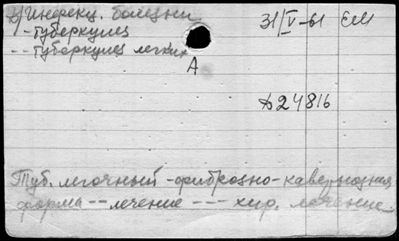 Инфекц. болезни 31/V-61 ЕМ
-туберкулез
--туберкулез легких
А
Д24816
Туб. легочный -фиброзно-кавернозная
форма --лечение --- хир. лечение